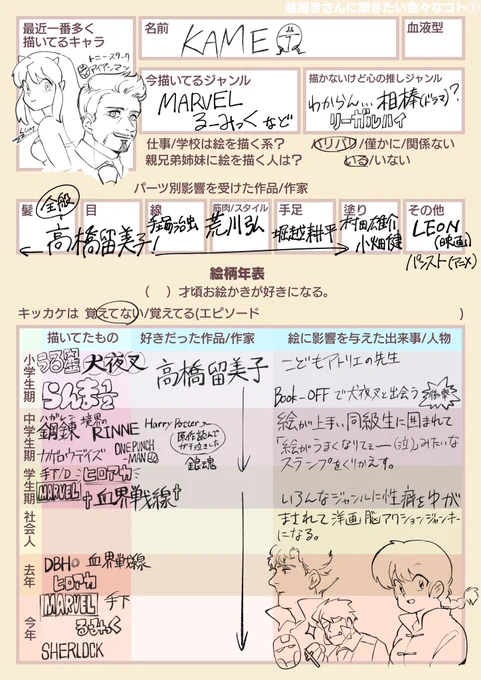 絵描きさんに聞きたい色々なコト①
最近一番多く
描いてるキャラ
トニースターク
アイアンマン
名前
KAME
血液型
今描いてるジャンル
MARVEL
るーみっく など
描かないけど心の推しジャンル
わからん… 相棒(ドラマ)?
リーガルハイ
仕事/学校は絵を描く系?
バリバリ/僅かに/関係ない
親兄弟姉妹に絵を描く人は?
いる/いない
パーツ別影響を受けた作品/作家
髪
全般
目
線
筋肉/スタイル
手足
塗り
その他
高橋留美子
手塚治虫
荒川弘
堀越耕平
村田雄介
小畑健
LEON
(映画)
パンスト(アニメ)
絵柄年表
( )才頃お絵かきが好きになる。
キッカケは 覚えてない/覚えてる(エピソード )
描いてたもの
好きだった作品/作家
絵に影響を与えた出来事/人物
小学生期
うる星 犬夜叉
らんま1/2
高橋留美子
こどもアトリエの先生
Book-OFFで犬夜叉と出会う 衝撃
中学生期
ハガレン
鋼錬 境界のRINNE
カゲロウデイズ
Harry Potter
原作読んで
ガチ泣きした
ONE PUNCH
-MAN
銀魂
絵が上手い同級生に囲まれて
「絵がうまくなりてぇー(泣)」みたいな
スランプをくりかえす。
学生期
手下/D ヒロアカ
MARVEL †血界戦線†
いろんなジャンルに性癖をゆが
まされて洋画脳アクションジャンキー
になる。
社会人
去年
DBH 血界戦線
ヒロアカ
今年
MARVEL 手下
るーみっく
SHERLOCK